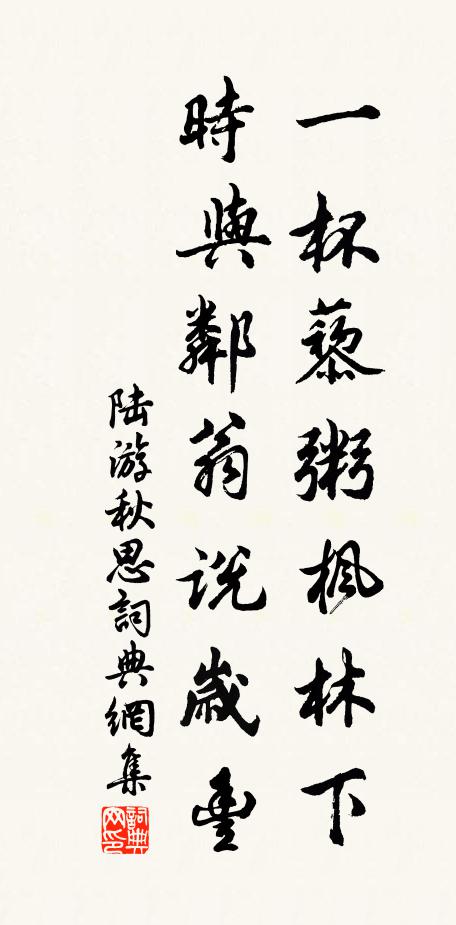 一杯藜粥楓林下
時與鄰翁説歲豐
陆游秋思詞典網集
詞典网印